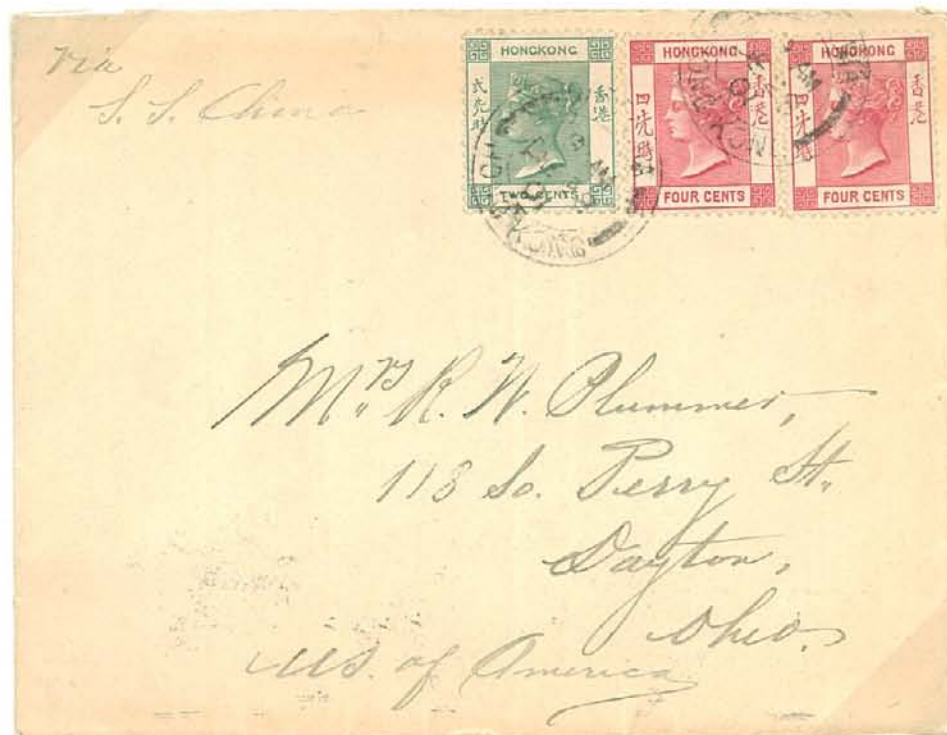 Via
S. S. China
HONGKONG
香港
弍先時
TWO CENTS
HONGKONG
香港
四先時
FOUR CENTS
HONGKONG
香港
四先時
FOUR CENTS
Mrs R. W. Plummer,
118 So. Perry St.
Dayton,
Ohio.
U.S. of America